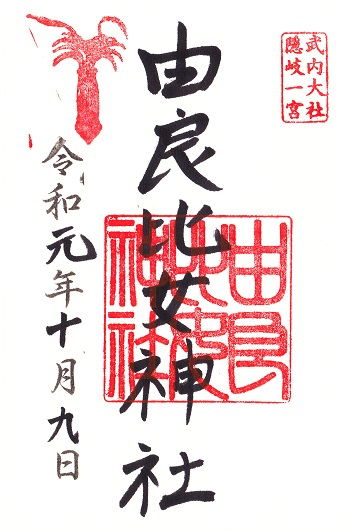 式内大社
隠岐一宮
由良比女神社
由良比女神社
令和元年十月九日